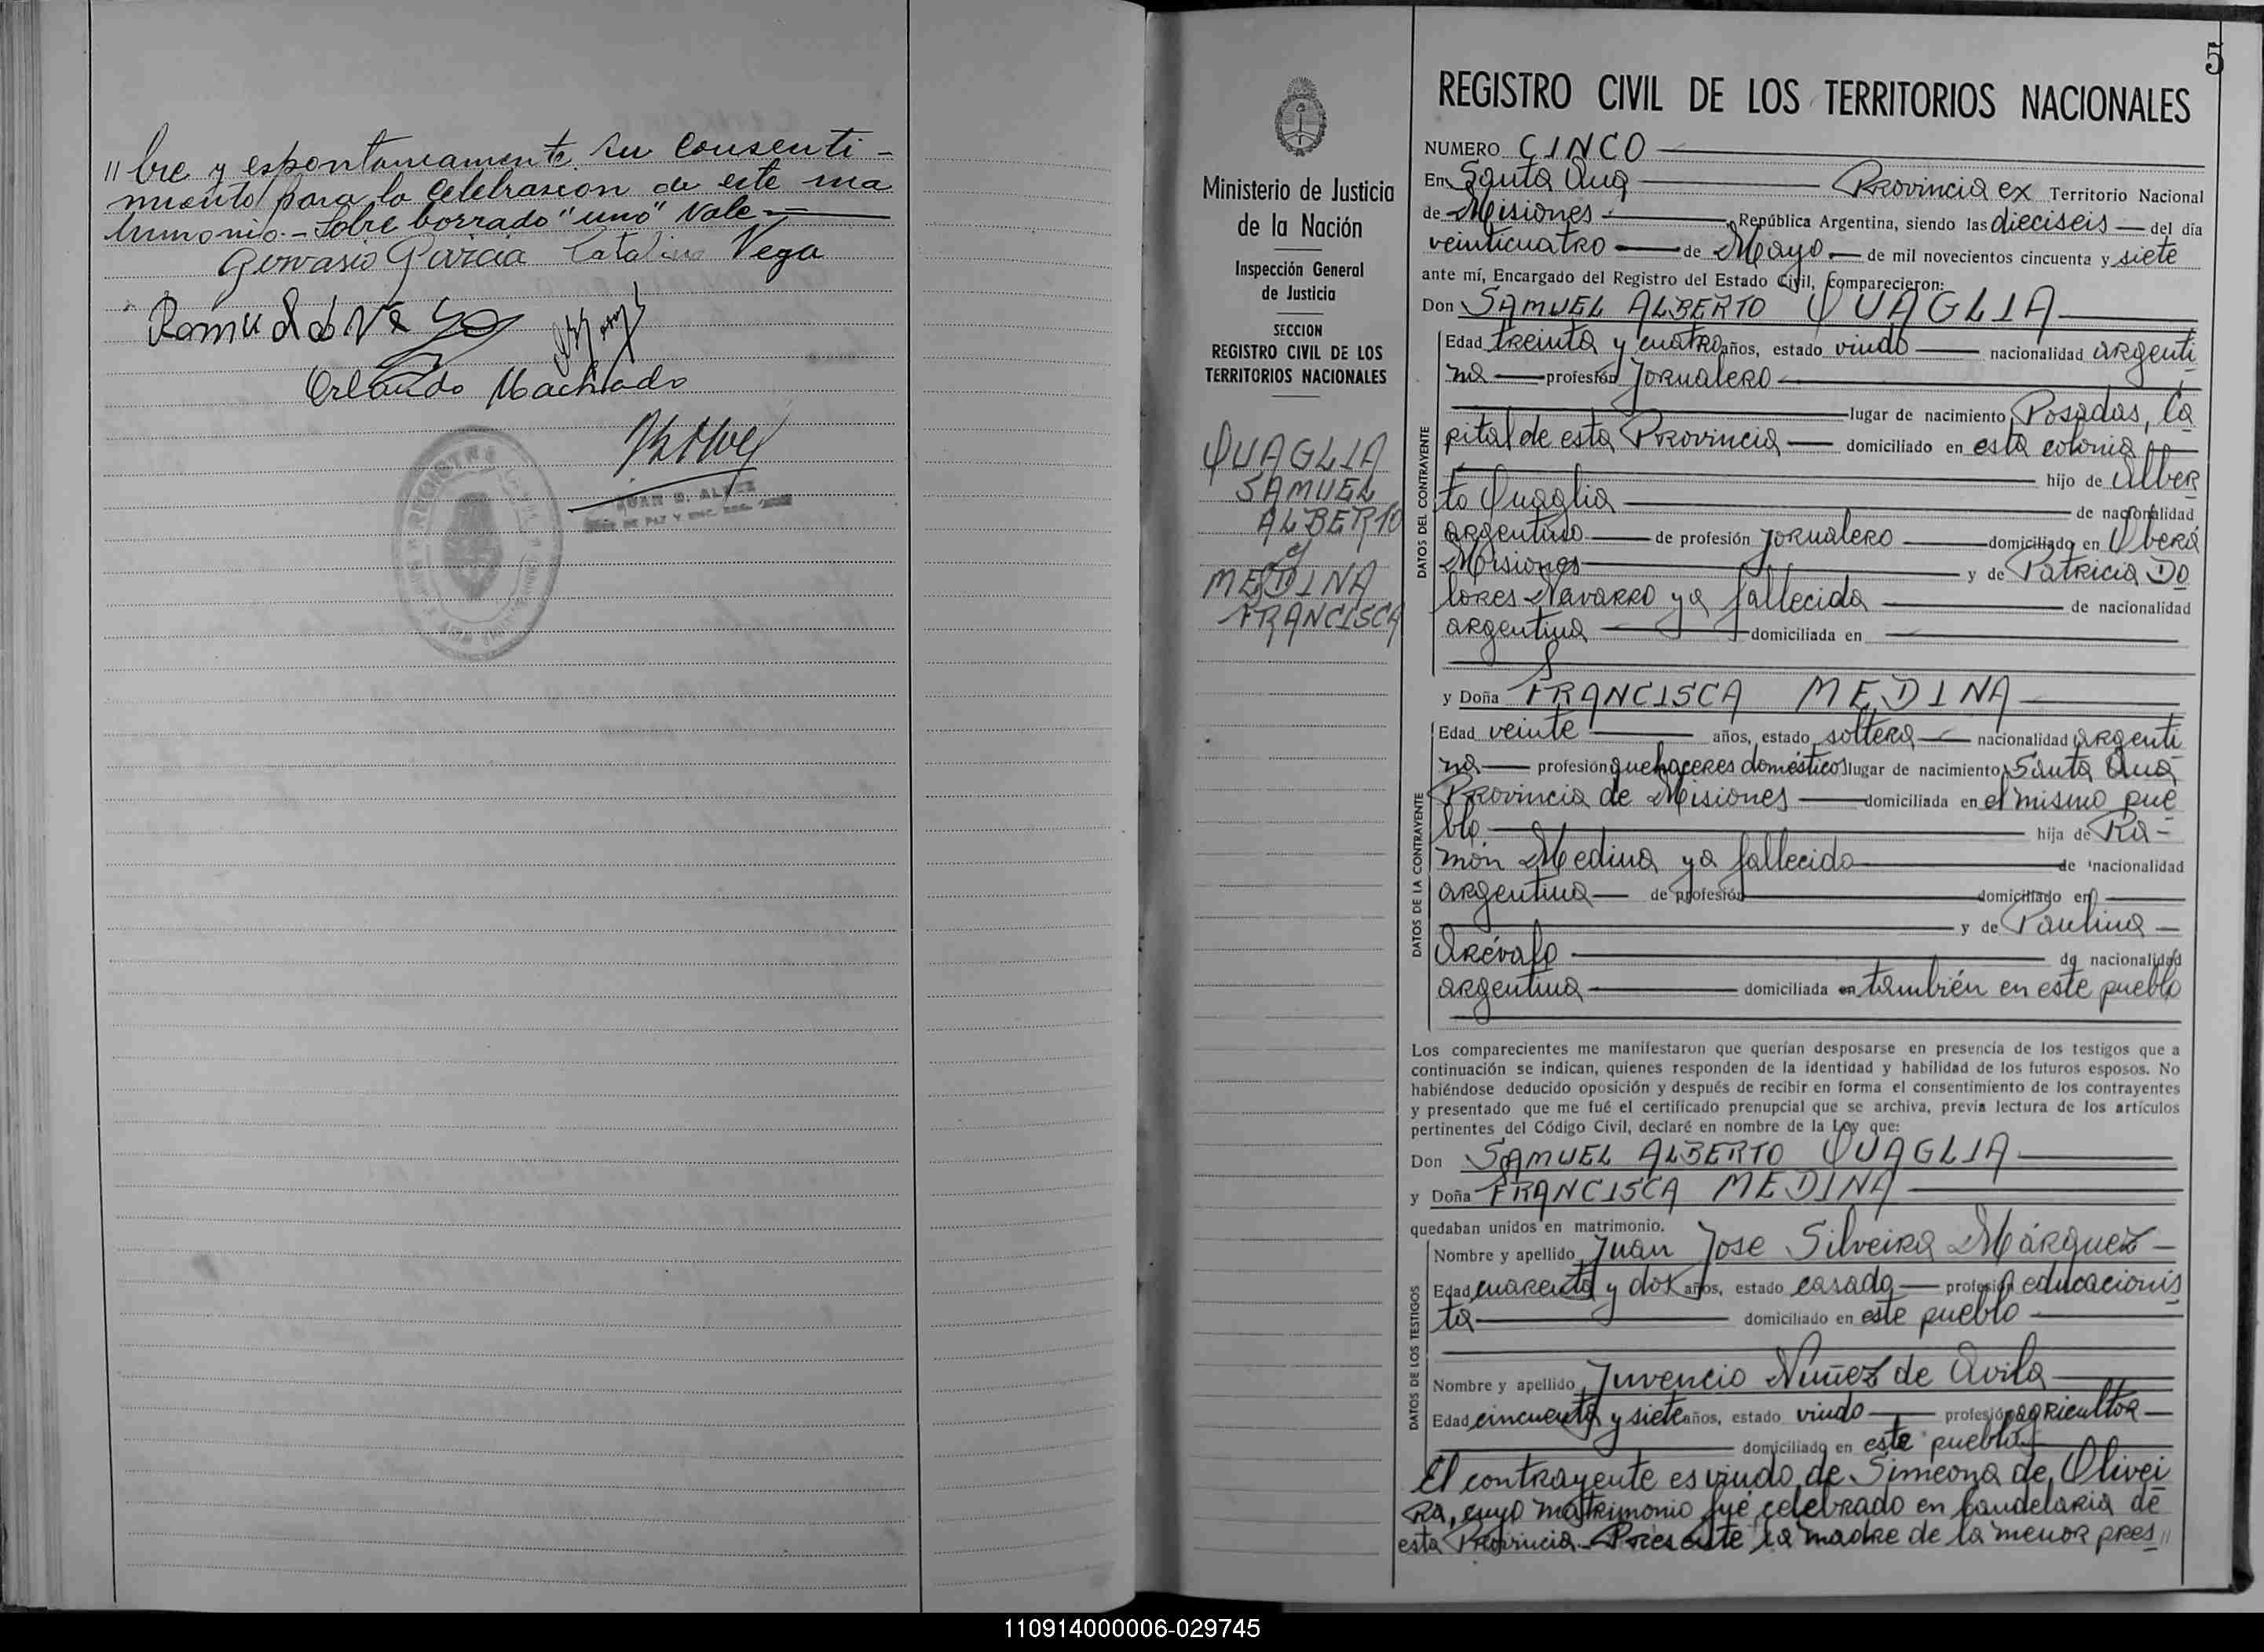 // bre y espontaneamente su consenti-
miento para la celebrasion de este ma
trimonio.- Sobre borrado "uno" Vale-
Gervasio Garcia Catalina Vega
Romualdo Vega
Orlando Machado
JUAN B. ALVEZ
DE PAZ Y ENC. REG.
5
REGISTRO CIVIL DE LOS TERRITORIOS NACIONALES
Ministerio de Justicia
de la Nación
Inspección General
de Justicia
SECCION
REGISTRO CIVIL DE LOS
TERRITORIOS NACIONALES
QUAGLIA
SAMUEL
ALBERTO
y
MEDINA
FRANCISCA
NUMERO CINCO
En Santa Ana Provincia ex Territorio Nacional
de Misiones República Argentina, siendo las dieciseis del día
veinticuatro de Mayo de mil novecientos cincuenta y siete
ante mí, Encargado del Registro del Estado Civil, comparecieron:
Don SAMUEL ALBERTO QUAGLIA
DATOS DEL CONTRAYENTE
Edad treinta y cuatro años, estado viudo nacionalidad argenti
na profesión Jornalero
lugar de nacimiento Posadas, Ca
pital de esta Provincia domiciliado en esta colonia
hijo de Alber
to Quaglia de nacionalidad
argentino de profesión Jornalero domiciliado en Oberá
Misiones y de Patricia Do
lores Navarro ya fallecida de nacionalidad
argentina domiciliada en
y Doña FRANCISCA MEDINA
DATOS DE LA CONTRAYENTE
Edad veinte años, estado soltera nacionalidad argenti
na profesión quehaceres domésticos lugar de nacimiento Santa Ana
Provincia de Misiones domiciliada en el mismo pue
blo hija de Ra-
món Medina ya fallecido de nacionalidad
argentina de profesión domiciliado en
y de Paulina
Arévalo de nacionalidad
argentina domiciliada en también en este pueblo
Los comparecientes me manifestaron que querían desposarse en presencia de los testigos que a
continuación se indican, quienes responden de la identidad y habilidad de los futuros esposos. No
habiéndose deducido oposición y después de recibir en forma el consentimiento de los contrayentes
y presentado que me fué el certificado prenupcial que se archiva, previa lectura de los artículos
pertinentes del Código Civil, declaré en nombre de la Ley que:
Don SAMUEL ALBERTO QUAGLIA
y Doña FRANCISCA MEDINA
quedaban unidos en matrimonio.
DATOS DE LOS TESTIGOS
Nombre y apellido Juan Jose Silveira Márquez
Edad cuarenta y dos años, estado casado profesión educacionis
ta domiciliado en este pueblo
Nombre y apellido Juvencio Nuñez de Avila
Edad cincuenta y siete años, estado viudo profesión agricultor
domiciliado en este pueblo
El contrayente es viudo de Simeona de Olivei
ra, cuyo matrimonio fué celebrado en Candelaria de
esta Provincia.- Presente la madre de la menor pres//
110914000006-029745